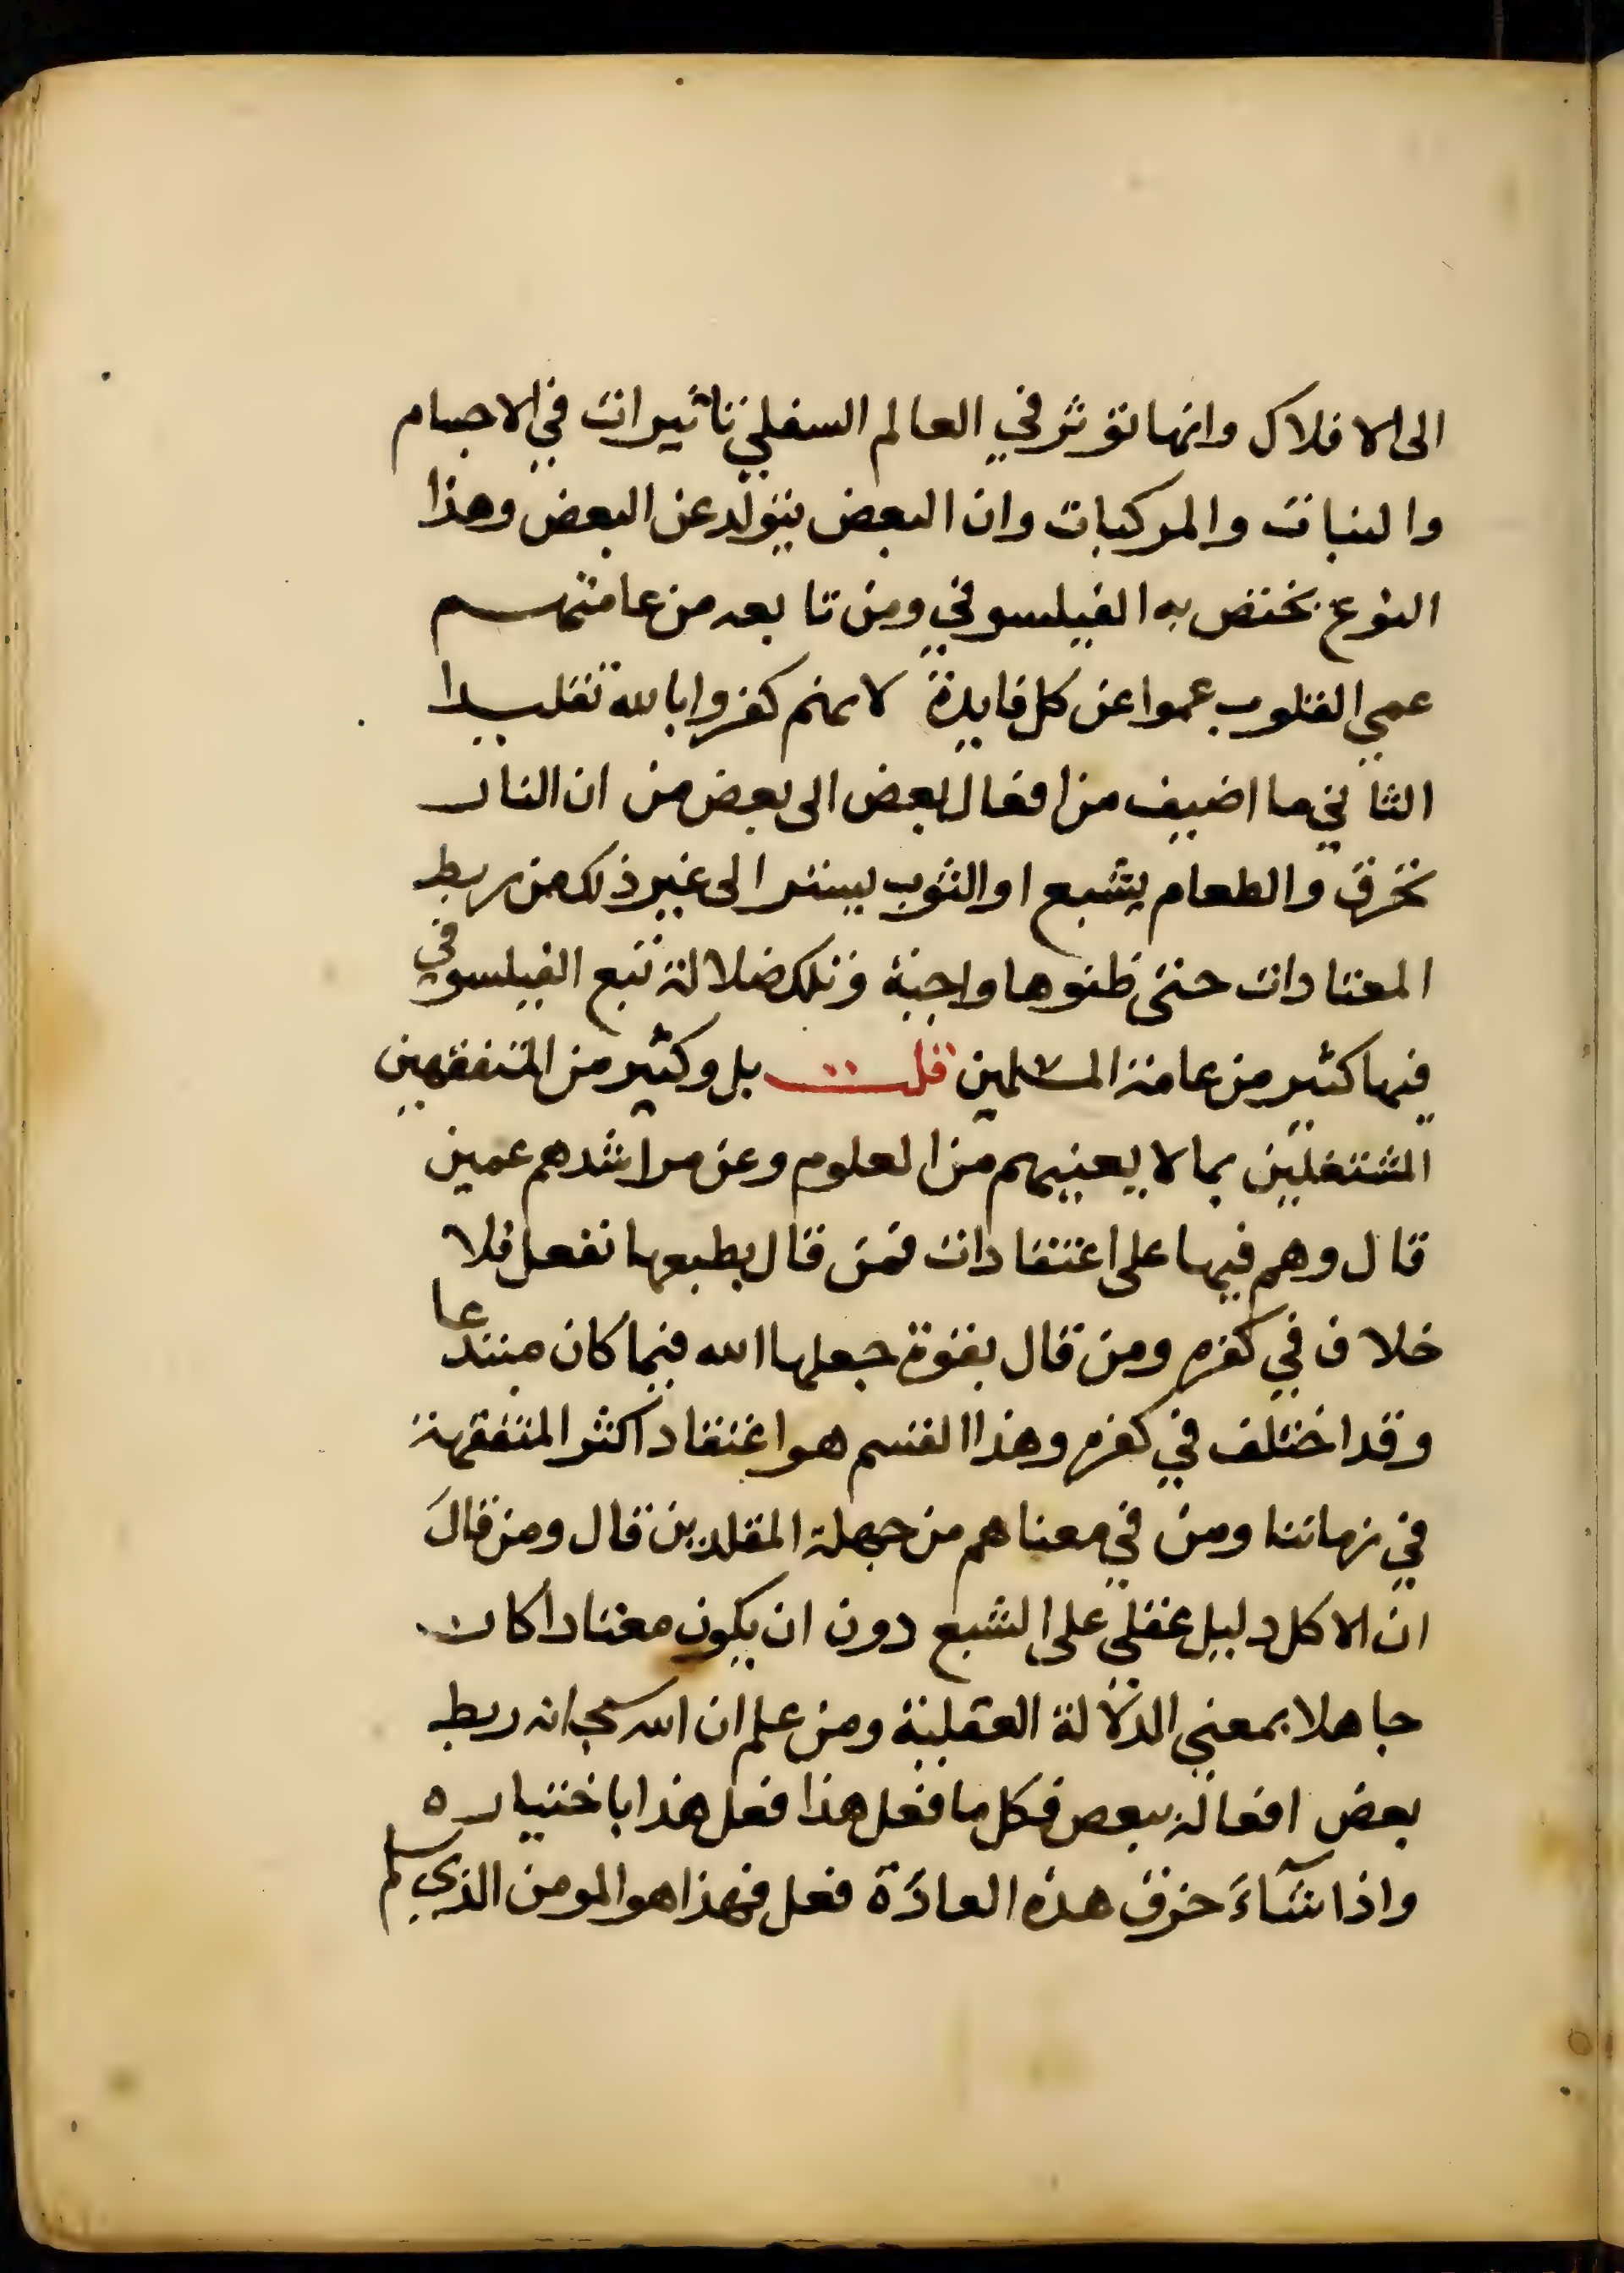 الى الافلاك وانها تؤثر في العالم السفلي تاثيرات في الاجسام
والنبات والمركبات وان البعض يتولد عن البعض وهذا
النوع يختص به الفيلسوفي ومن تابعه من عامتهم
عمي القلوب عموا عن كل فايدة لانهم كفروا بالله تقليدا
الثاني ما اضيف من افعال بعض الى بعض من ان النار
تحرق والطعام يشبع او الثوب يستر الى غير ذلك من ربط
المعتادات حتى ظنوها واجبة وتلك ضلالة تبع الفيلسوفي
فيها كثير من عامة المسلمين قلت بل وكثير من المتفقهين
المشتغلين بما لا يعنيهم من العلوم وعن مراشدهم عمين
قال وهم فيها على اعتقادات فمن قال بطبعها تفعل فلا
خلاف في كفره ومن قال بقوة جعلها الله فيها كان مبتدعا
وقد اختلف في كفره وهذا القسم هو اعتقاد اكثر المتفقهة
في زماننا ومن في معناهم من جهلة المقلدين قال ومن قال
ان الاكل دليل عقلي على الشبع دون ان يكون معتادا كان
جاهلا بمعنى الدلالة العقلية ومن علم ان الله سبحانه ربط
بعض افعاله ببعض فكل ما فعل هذا فعل هذا باختياره
واذا شاء خرق هذه العادة فعل فهذا هو المومن الذي سلم